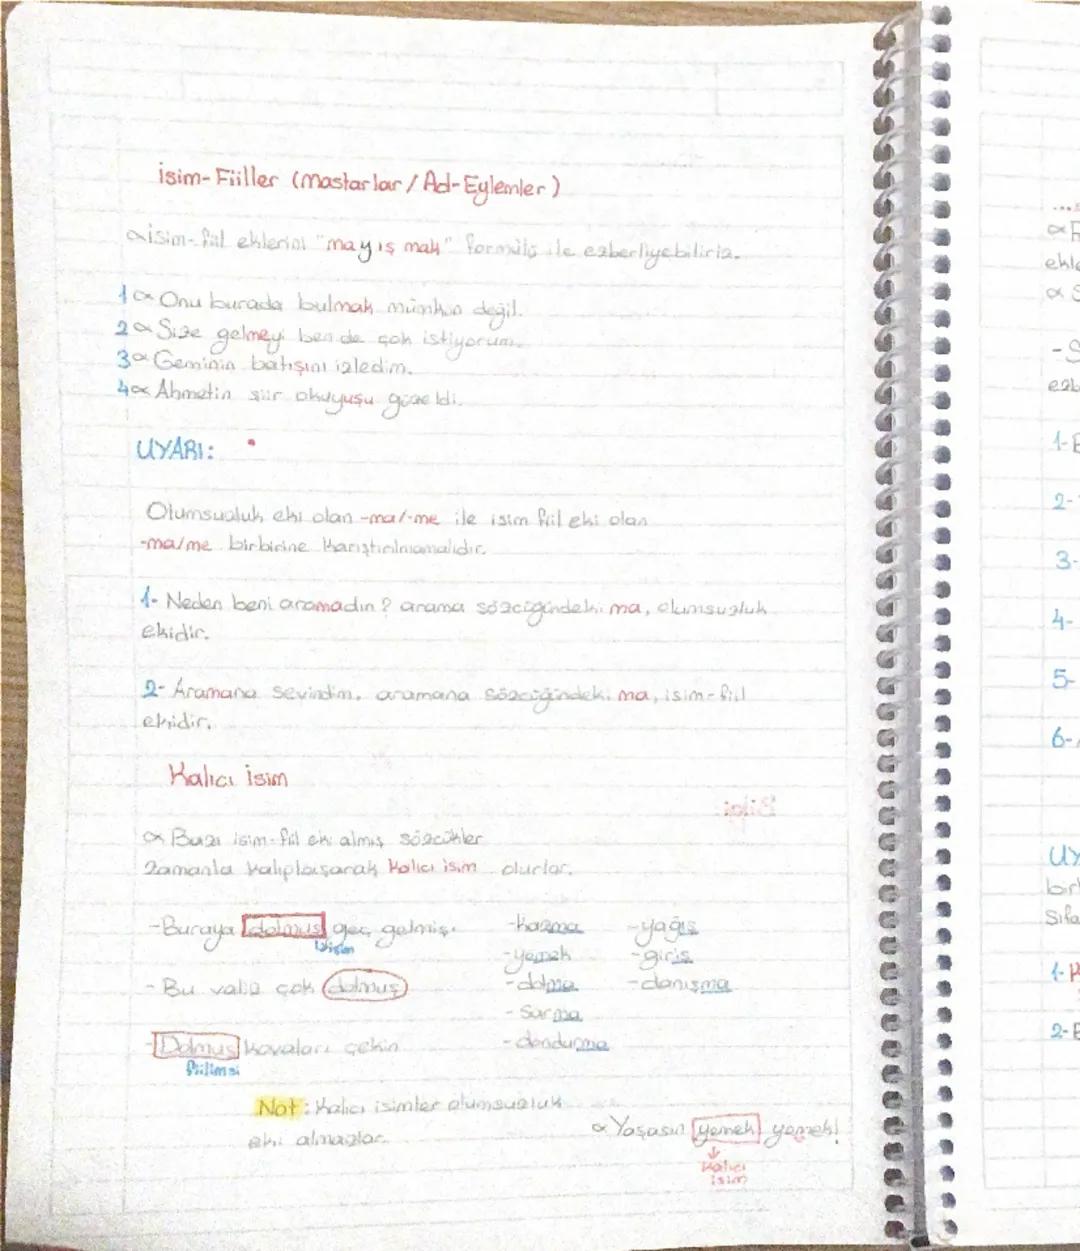 isim-Fiiller (mastarlar / Ad-Eylemler)
∝isim-fiil eklerini "ma yış mak" formülü ile ezberliyebiliriz.
1∝ Onu burada bulmak mümkün değil.
2∝ Size gelmeyi ben de çok istiyorum.
3∝ Geminin batışını izledim.
4∝ Ahmetin şiir okuyuşu güzeldi.
UYARI:
Olumsuzluk eki olan -ma/-me ile isim fiil eki olan
-ma/me birbirine karıştırılmamalıdır.
1- Neden beni aramadın? arama sözcüğündeki ma, olumsuzluk
ekidir.
2- Aramana sevindim. aramana sözcüğündeki ma, isim-fiil
ekidir.
Kalıcı isim
∝ Bazı isim-fiil eki almış sözcükler
zamanla kalıplaşarak kalıcı isim olurlar.
-Buraya dolmuş geç gelmiş. -kazma -yağış
isim -yemek -giriş
- Bu valiz çok dolmuş -dolma -danışma
- sarma
-Dolmuş kovaları çekin -dondurma
fiilimsi
Not: Kalıcı isimler olumsuzluk
eki almazlar.
∝ Yaşasın yemek yemek!
↓
Kalıcı
isim
∝
ekle
∝ S
-S
ezb
1-E
2-
3-
4-
5-
6-
UY
birb
Sıfa
1-
2-E